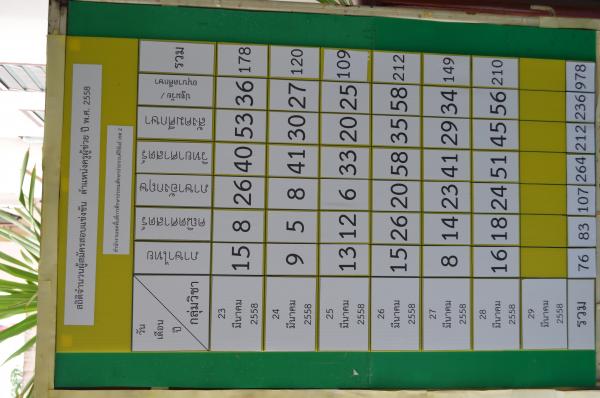 สถิติจำนวนผู้สมัครสอบแข่งขัน ตำแหน่งครูผู้ช่วย ปี พ.ศ. 2558
สำนักงานเขตพื้นที่การศึกษาประถมศึกษา เขต 2
วัน เดือน ปี กลุ่มวิชา ภาษาไทย คณิตศาสตร์ ภาษาอังกฤษ วิทยาศาสตร์ สังคมศึกษา ปฐมวัย / อนุบาลศึกษา รวม
23 มีนาคม 2558 15 8 26 40 53 36 178
24 มีนาคม 2558 9 5 8 41 30 27 120
25 มีนาคม 2558 13 12 6 33 20 25 109
26 มีนาคม 2558 15 26 20 58 35 58 212
27 มีนาคม 2558 8 14 23 41 29 34 149
28 มีนาคม 2558 16 18 24 51 45 56 210
29 มีนาคม 2558
รวม 76 83 107 264 212 236 978